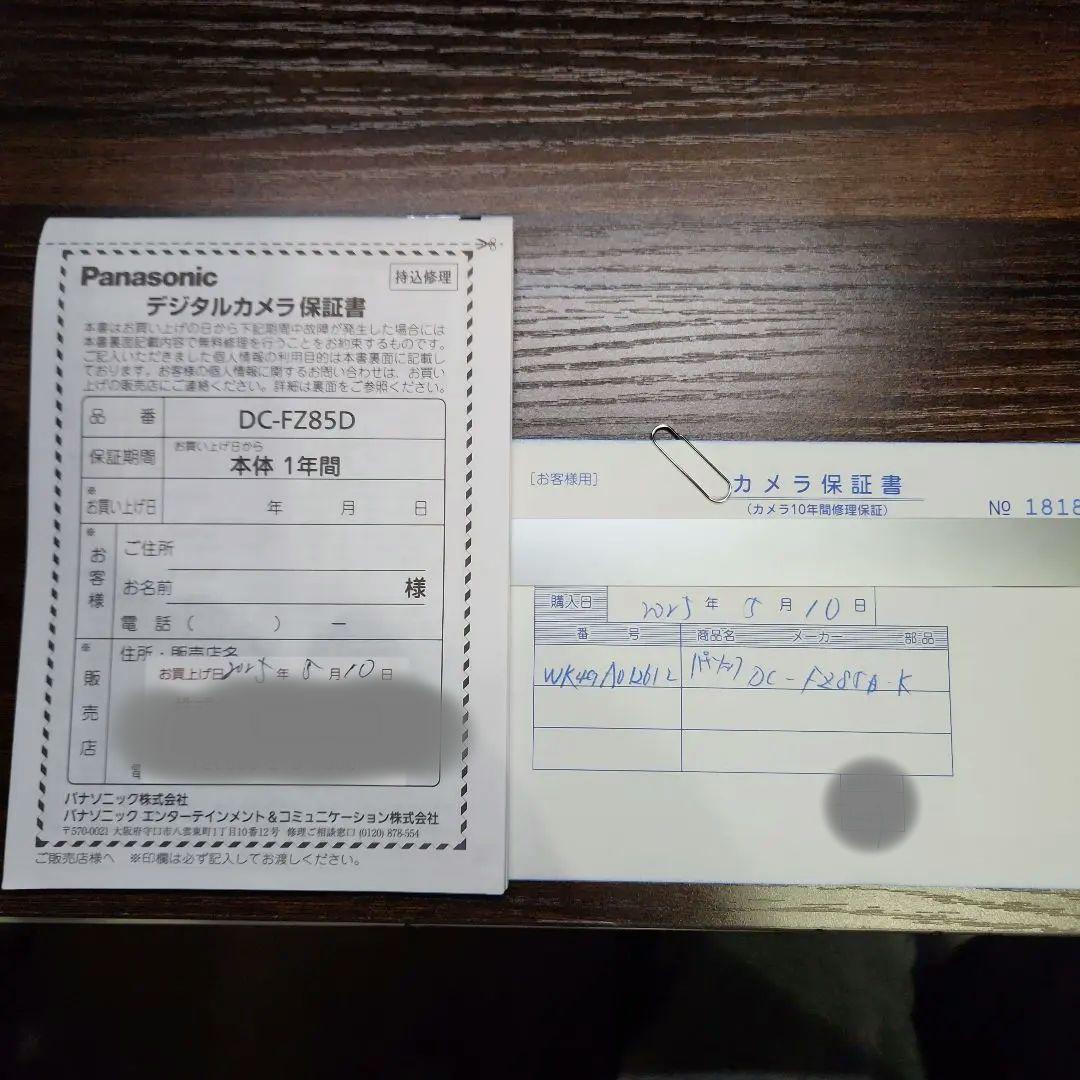 Panasonic
持込修理
デジタルカメラ保証書
本書はお買い上げの日から下記期間中故障が発生した場合には
本書裏面記載内容で無料修理を行うことをお約束するものです。
ご記入いただきました個人情報の利用目的は本書裏面に記載し
ております。お客様の個人情報に関するお問い合わせは、お買い
上げの販売店にご連絡ください。詳細は裏面をご参照ください。
品番 DC-FZ85D
保証期間 お買い上げ日から
本体 1年間
※お買い上げ日 年 月 日
※お客様
ご住所
お名前 様
電話( ) ー
※販売店
住所・販売店名
お買上げ日 2025年 8月 10日
パナソニック株式会社
パナソニック エンターテインメント&コミュニケーション株式会社
〒570-0021 大阪府守口市八雲東町1丁目10番12号 修理ご相談窓口 (0120) 878-554
ご販売店様へ ※印欄は必ず記入してお渡しください。
[お客様用]
カメラ保証書
(カメラ10年間修理保証)
№ 1818
購入日 2025年 8月 10日
番号 商品名 メーカー 部品
パナソニック DC-FZ85D-K